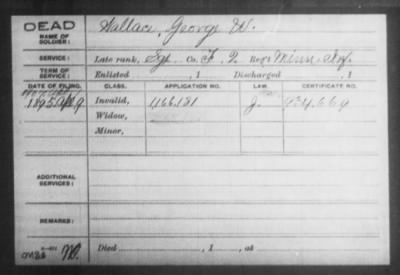 DEAD
NAME OF SOLDIER:
Wallace, George W.
SERVICE:
Late rank, Sgt. Co. F, 2 Reg't Minn. Inf.
TERM OF SERVICE:
Enlisted , 1 Discharged , 1
DATE OF FILING. CLASS. APPLICATION NO. LAW. CERTIFICATE NO.
1895 Invalid, 1166.181 J. 934.669
Widow,
Minor,
ADDITIONAL SERVICES:
REMARKS:
Died , 1 , at